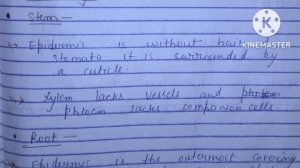 • Stem —
→ Epidermis is without hai
stomata it is surrounded by
a cuticle.
→ Xylem lacks vessels and
phloem lacks companion cells
• Root —
→ Epidermis is the outermost covering
KINEMASTER